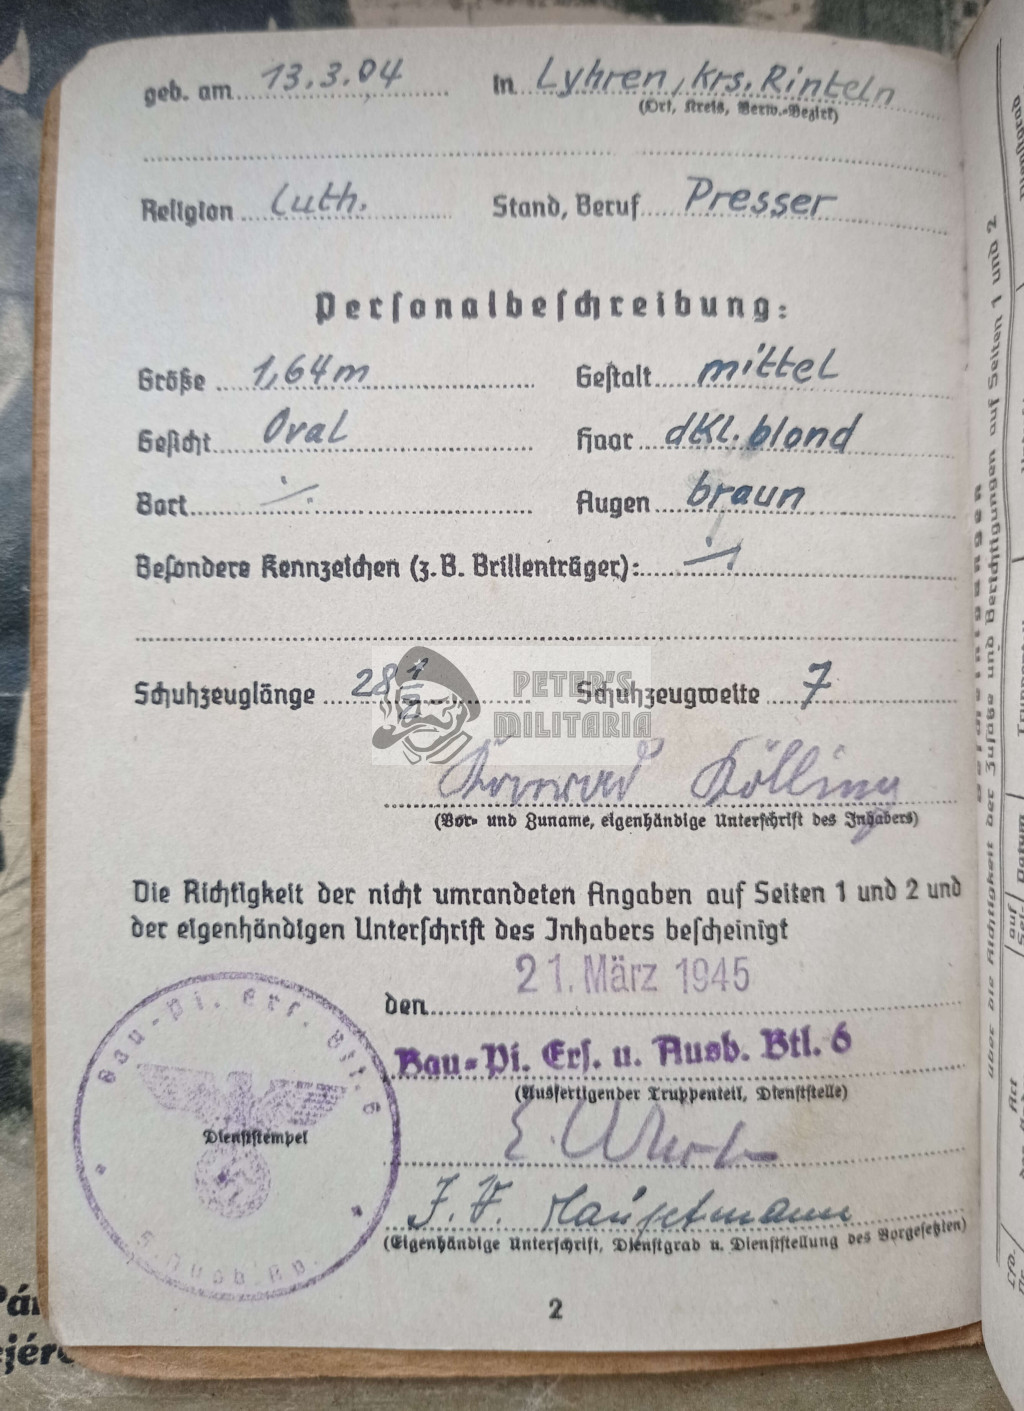 geb. am 13.3.04 in Lyhren, Krs. Rinteln
(Ort, Kreis, Verw.-Bezirk)
Religion Luth. Stand, Beruf Presser
Personalbeschreibung:
Größe 1,64 m Gestalt mittel
Gesicht Oval Haar dkl. blond
Bart ./. Augen braun
Besondere Kennzeichen (z. B. Brillenträger): ./.
Schuhzeuglänge 28 1/2 Schuhzeugweite 7
PETER'S
MILITARIA
Konrad Kölling
(Vor- und Zuname, eigenhändige Unterschrift des Inhabers)
Die Richtigkeit der nicht umrandeten Angaben auf Seiten 1 und 2 und
der eigenhändigen Unterschrift des Inhabers bescheinigt
den 21. März 1945
Bau-Pi. Ers. u. Ausb. Btl. 6
(Ausfertigender Truppenteil, Dienststelle)
J. V. Hauptmann
(Eigenhändige Unterschrift, Dienstgrad u. Dienststellung des Vorgesetzten)
Bau-Pi. Ers. Btl. 6
Dienststempel
5. Ausb. Kp.
2
über die Richtigkeit der Zusätze und Berichtigungen auf Seiten 1 und 2
Datum
auf
Lfd.